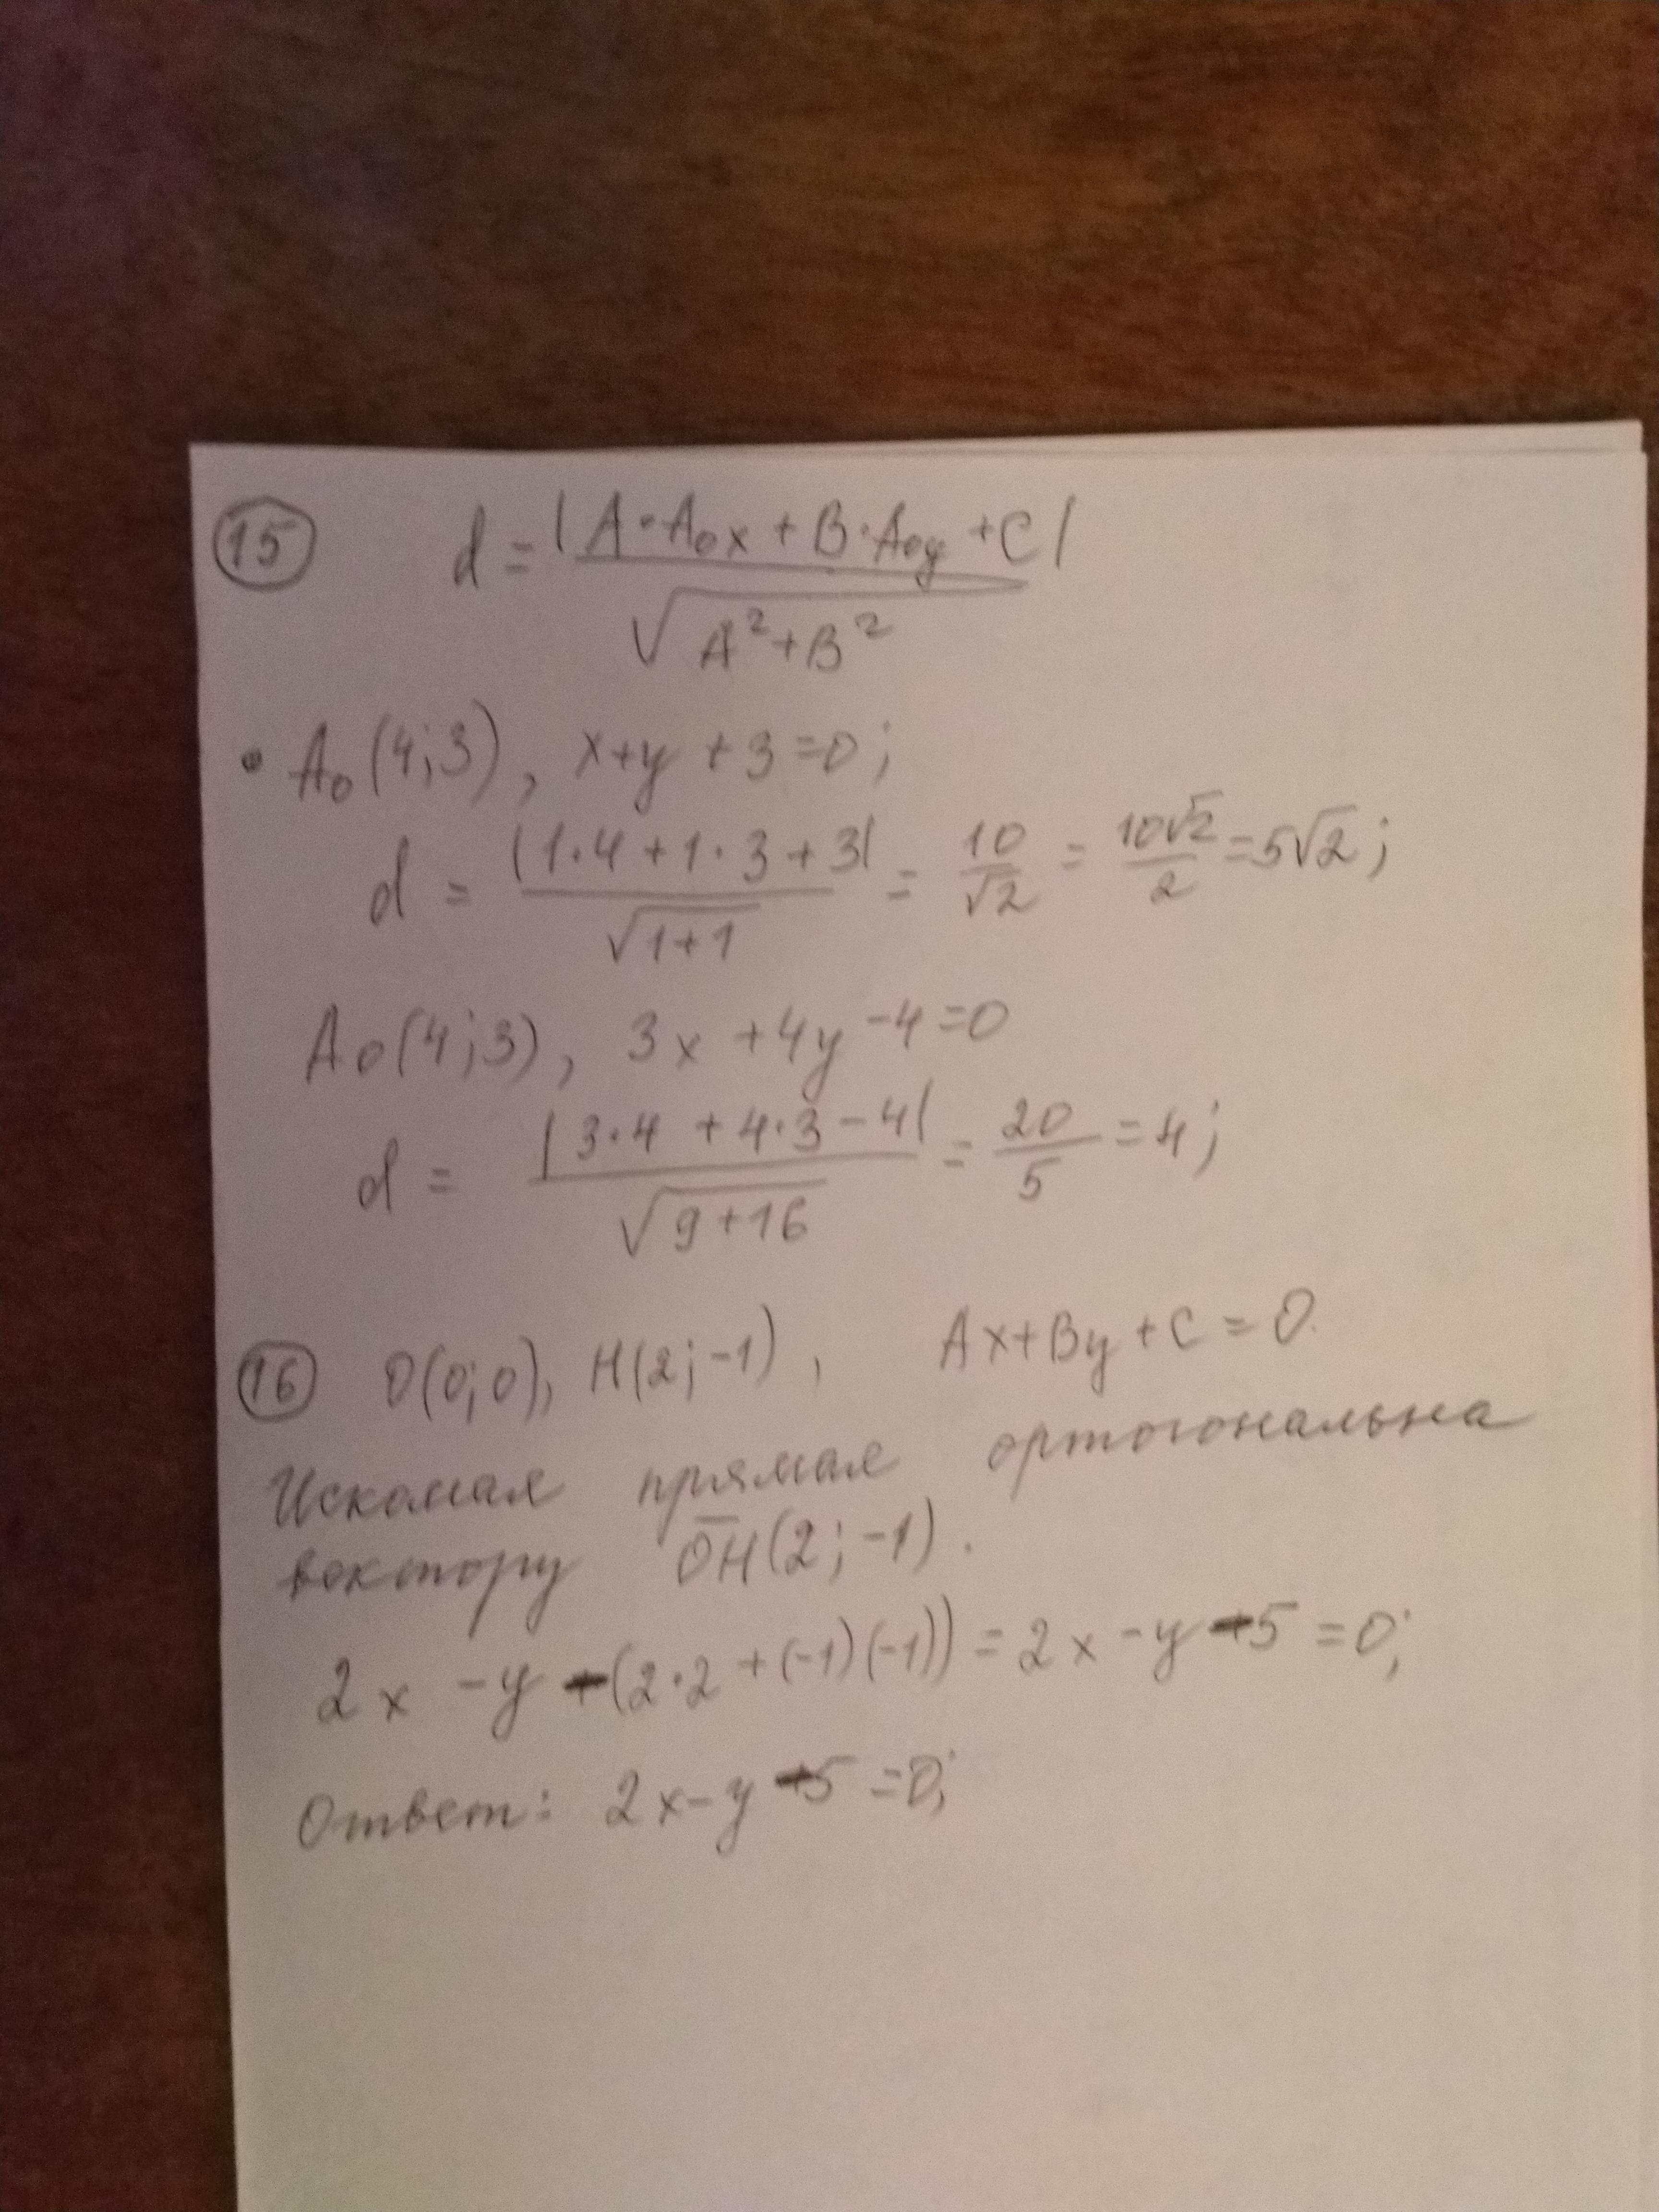 15 d = |A·A₀x + B·A₀y + C| / √(A² + B²)
• A₀(4;3), x+y+3=0;
d = |1·4+1·3+3| / √(1+1) = 10/√2 = 10√2/2 = 5√2;
A₀(4;3), 3x+4y-4=0
d = |3·4+4·3-4| / √(9+16) = 20/5 = 4;
16 O(0;0), H(2;-1), Ax+By+C=0.
Искомая прямая ортогональна
вектору OH(2;-1).
2x-y-(2·2+(-1)(-1))=2x-y-5=0;
Ответ: 2x-y-5=0;